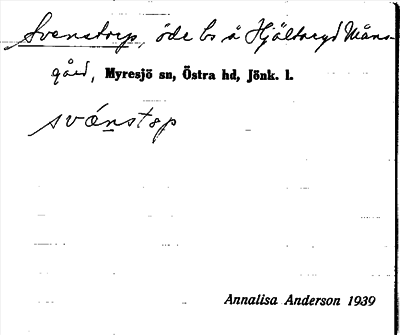 Svenstorp, öde bs å Hjältaryd Måns-
gård, Myresjö sn, Östra hd, Jönk. l.
svä́nstɐp
Annalisa Anderson 1939